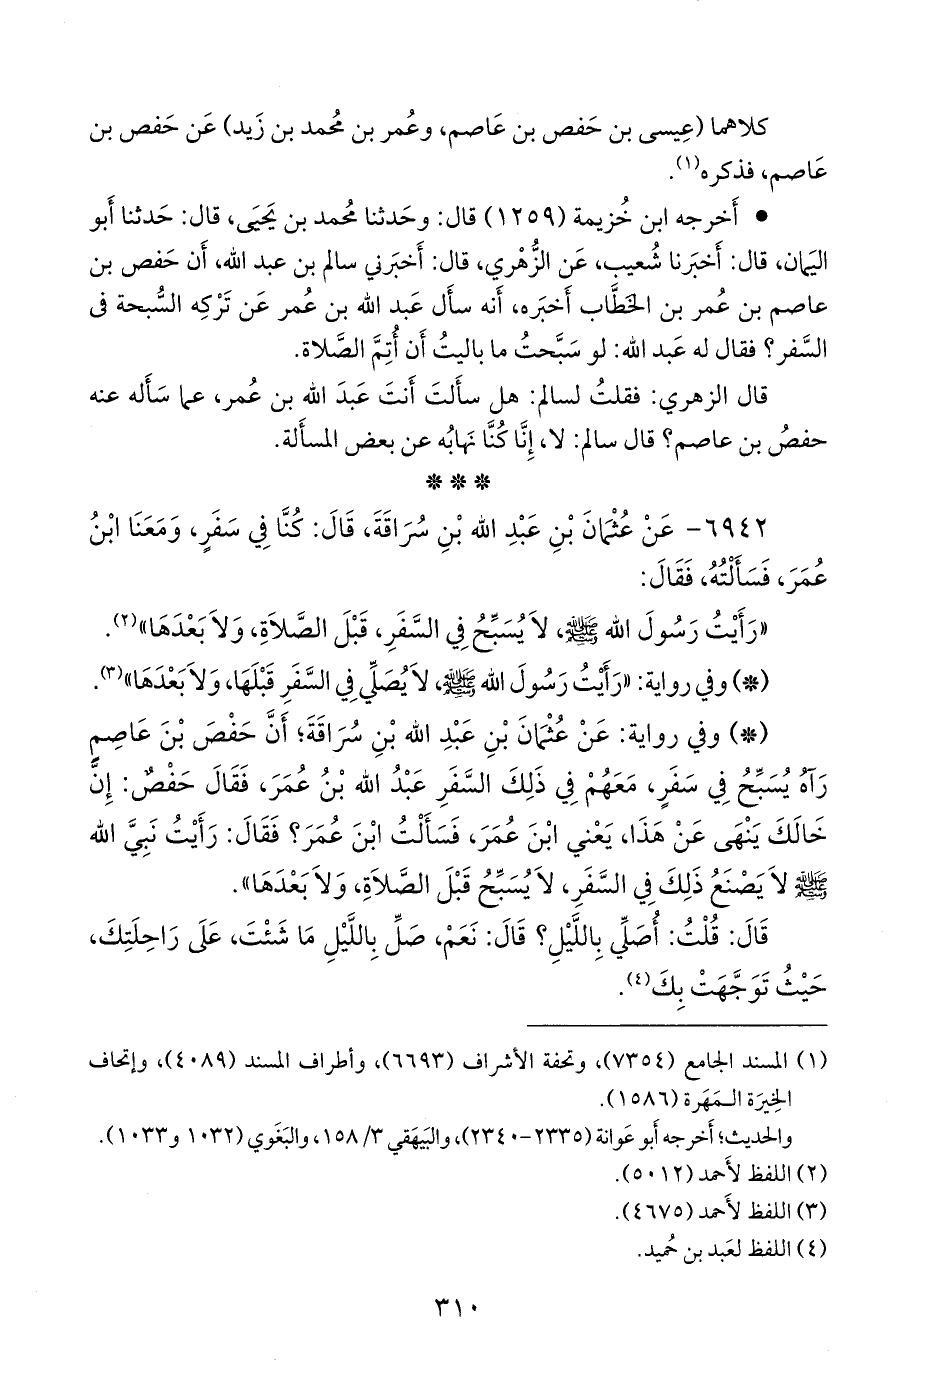 كلاهما (عِيسى بن حَفص بن عَاصم، وعُمر بن مُحمد بن زَيد) عَن حَفص بن
عَاصم، فذكره(١).
• أَخرجه ابن خُزيمة (١٢٥٩) قال: وحَدثنا مُحمد بن يَحيَى، قال: حَدثنا أَبو
اليَمان، قال: أَخبَرنا شُعيب، عَن الزُّهْري، قال: أَخبَرني سالم بن عبد الله، أَن حَفص بن
عاصم بن عُمر بن الخَطَّاب أَخبَره، أَنه سأَل عَبد الله بن عُمر عَن تَرْكِه السُّبحة في
السَّفر؟ فقال له عَبد الله: لو سَبَّحتُ ما باليتُ أَن أُتِمَّ الصَّلاة.
قال الزهري: فقلتُ لسالم: هل سأَلتَ أَنتَ عَبدَ الله بن عُمر، عما سَأَله عنه
حفصُ بن عاصم؟ قال سالم: لا، إِنَّا كُنَّا نَهابُه عن بعض المسأَلة.
* * *
٦٩٤٢- عَنْ عُثْمَانَ بْنِ عَبْدِ الله بْنِ سُرَاقَةَ، قَالَ: كُنَّا فِي سَفَرٍ، وَمَعَنَا ابْنُ
عُمَرَ، فَسَأَلْتُهُ، فَقَالَ:
«رَأَيْتُ رَسُولَ الله ﷺ، لاَ يُسَبِّحُ فِي السَّفَرِ، قَبْلَ الصَّلاَةِ، وَلاَ بَعْدَهَا»(٢).
(*) وفي رواية: «رَأَيْتُ رَسُولَ الله ﷺ، لاَ يُصَلِّي فِي السَّفَرِ قَبْلَهَا، وَلاَ بَعْدَهَا»(٣).
(*) وفي رواية: عَنْ عُثْمَانَ بْنِ عَبْدِ الله بْنِ سُرَاقَةَ؛ أَنَّ حَفْصَ بْنَ عَاصِمٍ
رَآهُ يُسَبِّحُ فِي سَفَرٍ، مَعَهُمْ فِي ذَلِكَ السَّفَرِ عَبْدُ الله بْنُ عُمَرَ، فَقَالَ حَفْصٌ: إِنَّ
خَالَكَ يَنْهَى عَنْ هَذَا، يَعْنِي ابْنَ عُمَرَ، فَسَأَلْتُ ابْنَ عُمَرَ؟ فَقَالَ: رَأَيْتُ نَبِيَّ الله
ﷺ لاَ يَصْنَعُ ذَلِكَ فِي السَّفَرِ، لاَ يُسَبِّحُ قَبْلَ الصَّلاَةِ، وَلاَ بَعْدَهَا».
قَالَ: قُلْتُ: أُصَلِّي بِاللَّيْلِ؟ قَالَ: نَعَمْ، صَلِّ بِاللَّيْلِ مَا شَئْتَ، عَلَى رَاحِلَتِكَ،
حَيْثُ تَوَجَّهَتْ بِكَ(٤).
(١) المسند الجامع (٧٣٥٤)، وتحفة الأشراف (٦٦٩٣)، وأطراف المسند (٤٠٨٩)، وإتحاف
الخِيرَة الـمَهَرة (١٥٨٦).
والحديث؛ أخرجه أبو عَوانة (٢٣٣٥-٢٣٤٠)، والبَيهَقي ٣/ ١٥٨، والبَغَوي (١٠٣٢ و١٠٣٣).
(٢) اللفظ لأَحمد (٥٠١٢).
(٣) اللفظ لأَحمد (٤٦٧٥).
(٤) اللفظ لعَبد بن حُميد.
٣١٠